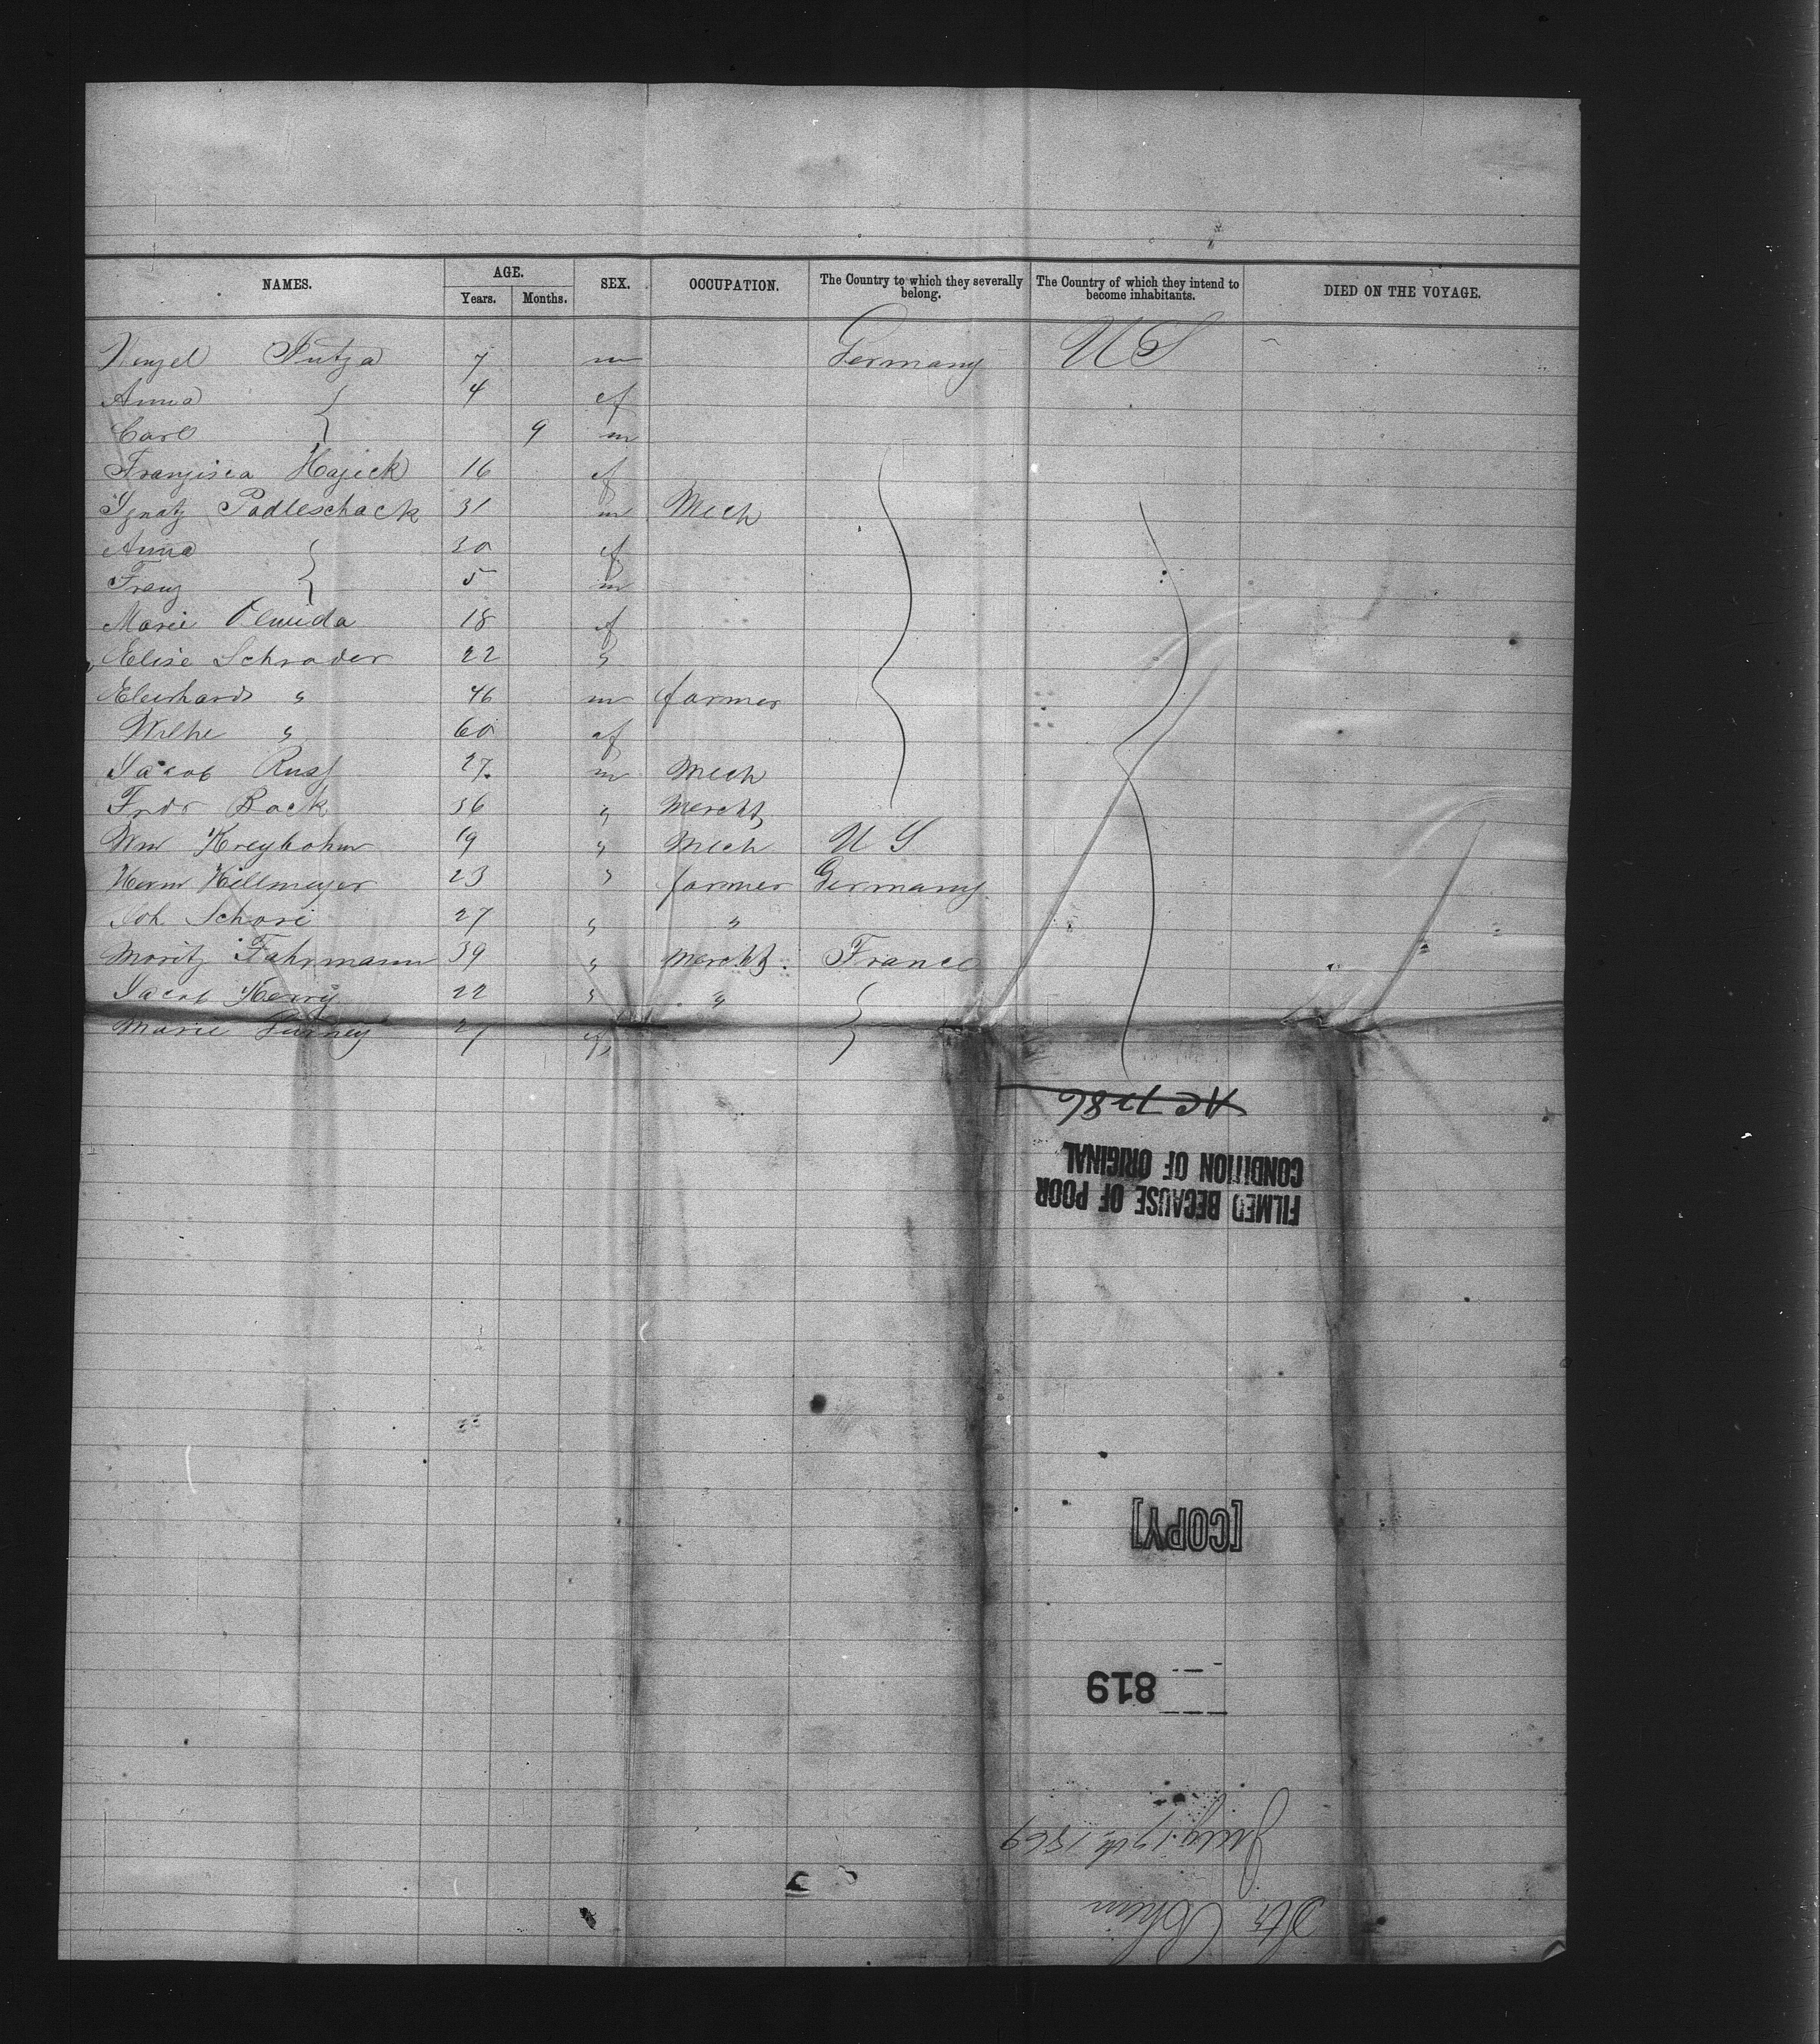 NAMES. AGE. SEX. OCCUPATION. The Country to which they severally belong. The Country of which they intend to become inhabitants. DIED ON THE VOYAGE.
Years. Months.
Wenzel Putza 7 m Germany U S
Anna 4 f
Carl 9 m
Franzisca Hajeck 16 f
Ignatz Padleschack 31 m Mech
Anna 30 f
Franz 5 m
Marie 18 f
Elise Schrader 22 "
Eberhard " 46 m farmer
Wilhe " 60 f
Jacob Russ 27. m Mech
Fredr Back 36 " Mercht
Wm Kreybohm 19 " Mech U S
Herm Hillmeyer 23 " farmer Germany
Joh. Schori 27 " "
Moritz Fahrmann 39 " Mercht. France
Jacob Henry 22 " "
Marie 21 f
AC 7286
FILMED BECAUSE OF POOR
CONDITION OF ORIGINAL
[COPY]
819
17th 1869
Str. Rhein